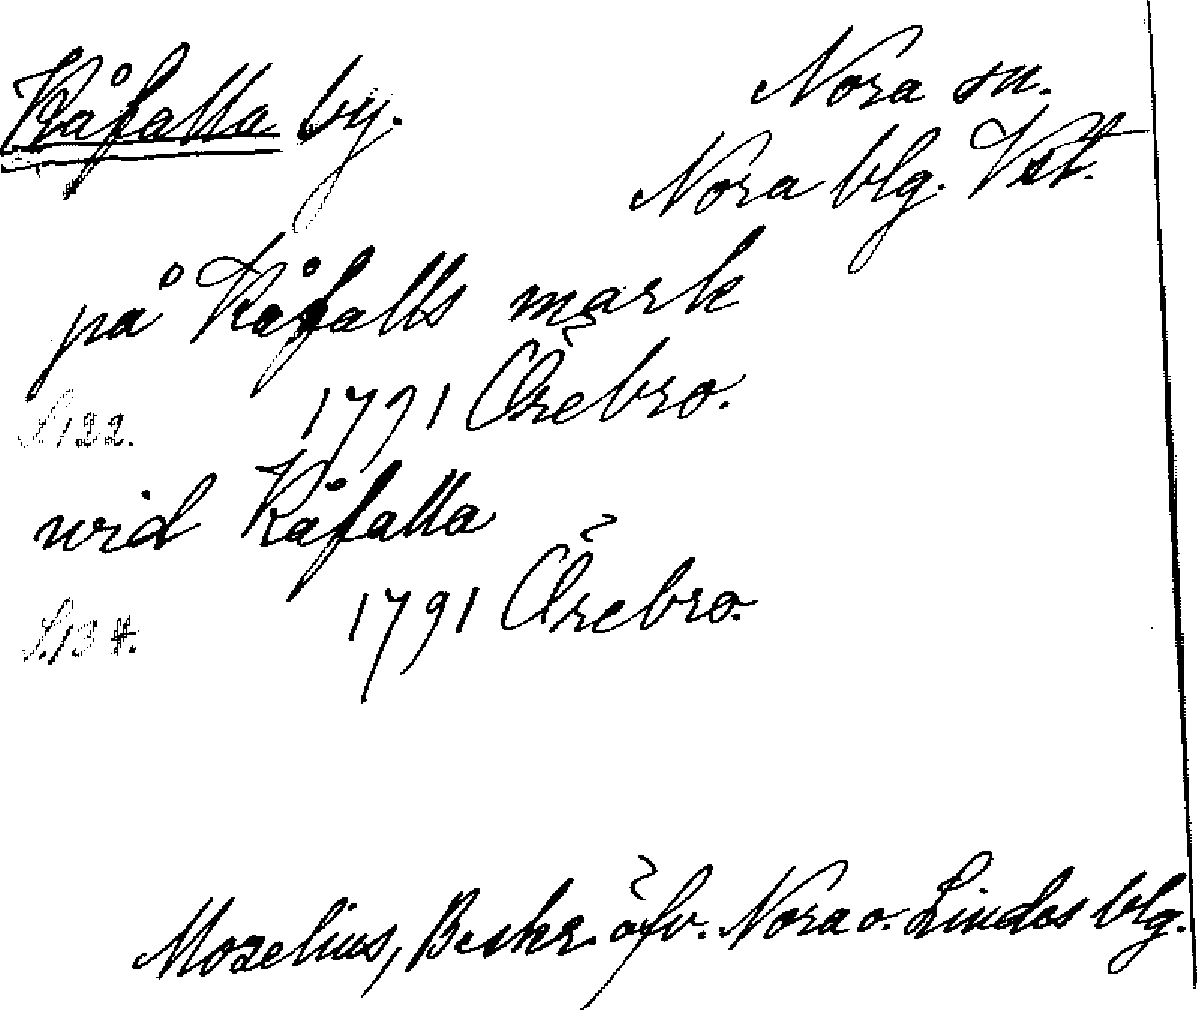 Kåfalla by.
Nora sn.
Nora blg. Vstl.
på Kåfalls mark
S. 122. 1791 Örebro.
wid Kåfalla
S. 134. 1791 Örebro.
Mozelius, Beskr. öfv. Nora o. Lindes blg.